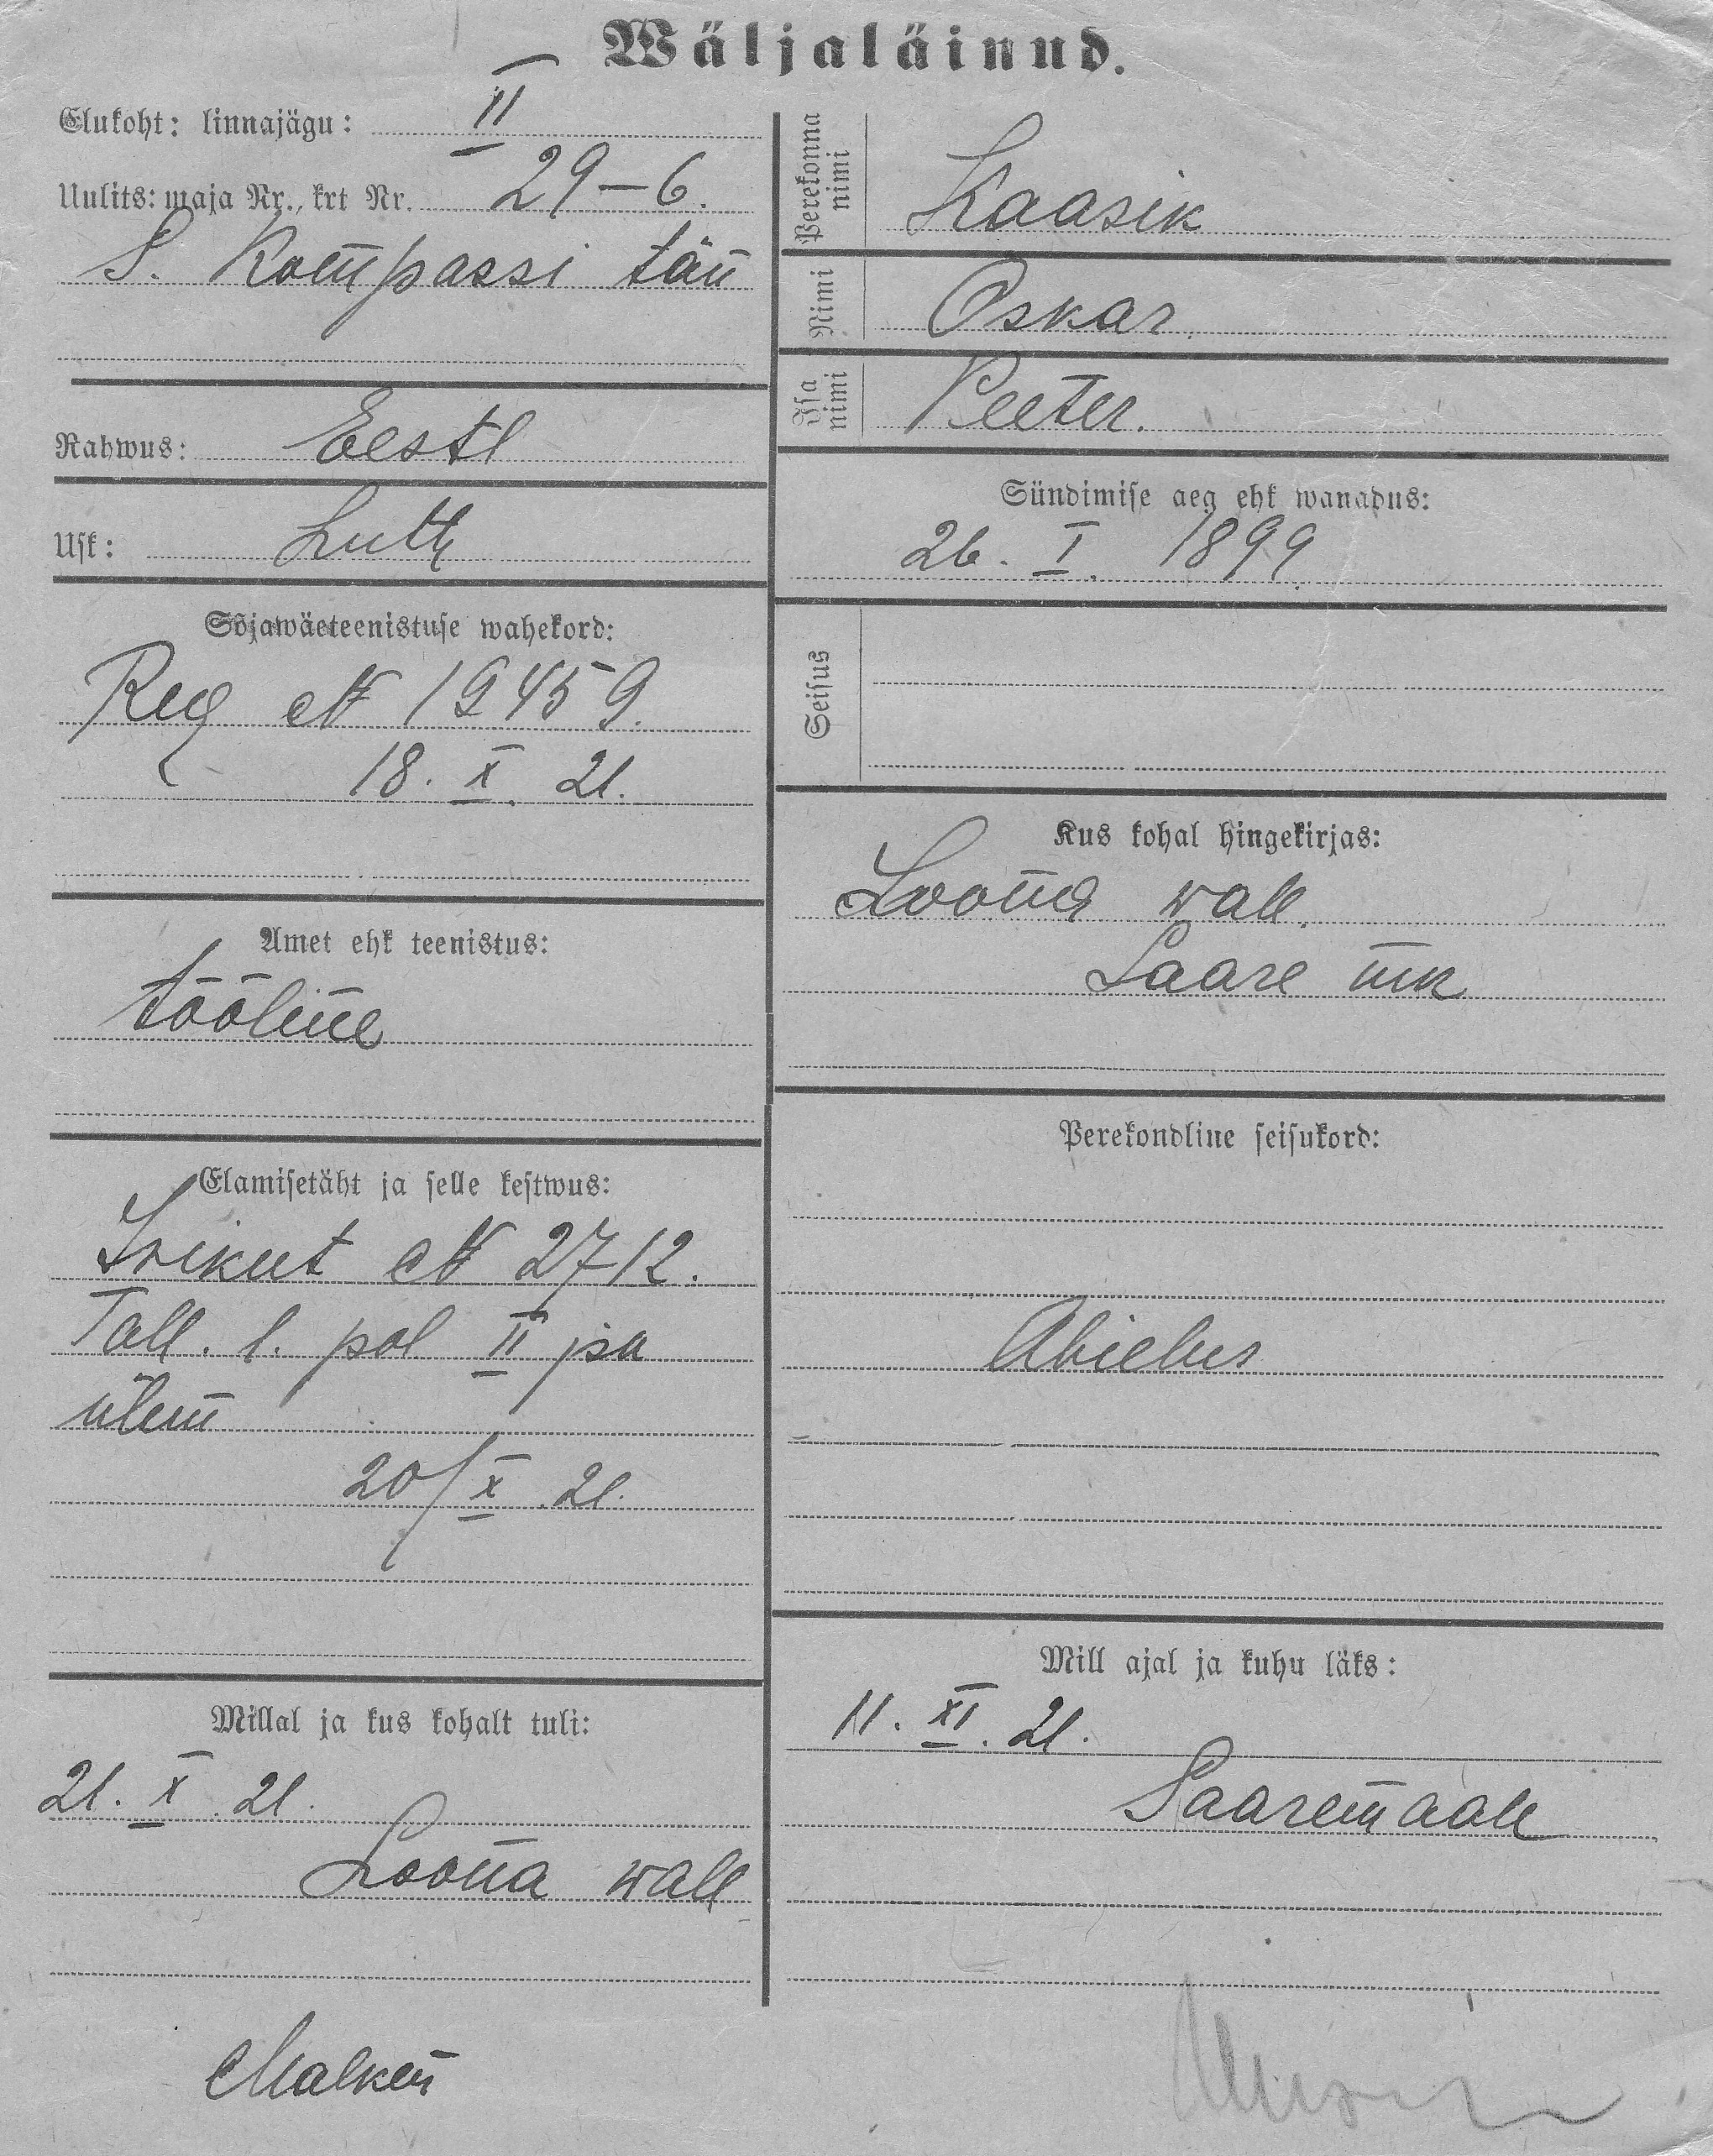 Wäljaläinud.
Elukoht: linnajägu: II
Uulits: maja Nr., krt Nr. 29-6.
S. Kompassi tän
Rahwus: Eestl
Usk: Luth
Sõjawäeteenistuse wahekord:
Reg № 19459.
18. X. 21.
Amet ehk teenistus:
tööline
Elamisetäht ja selle kestwus:
Isikut № 2712.
Tall. l. pol II jsk
ülem
20/X. 21.
Millal ja kus kohalt tuli:
21. X. 21.
Loona wall
Perekonna nimi Kaasik
Nimi Oskar.
Isa nimi Peeter.
Sündimise aeg ehk wanadus:
26. I. 1899.
Seisus
Kus kohal hingekirjas:
Loona wall.
Saare mk
Perekondline seisukord:
Abielus
Mill ajal ja kuhu läks:
11. XI. 21.
Saaremaale